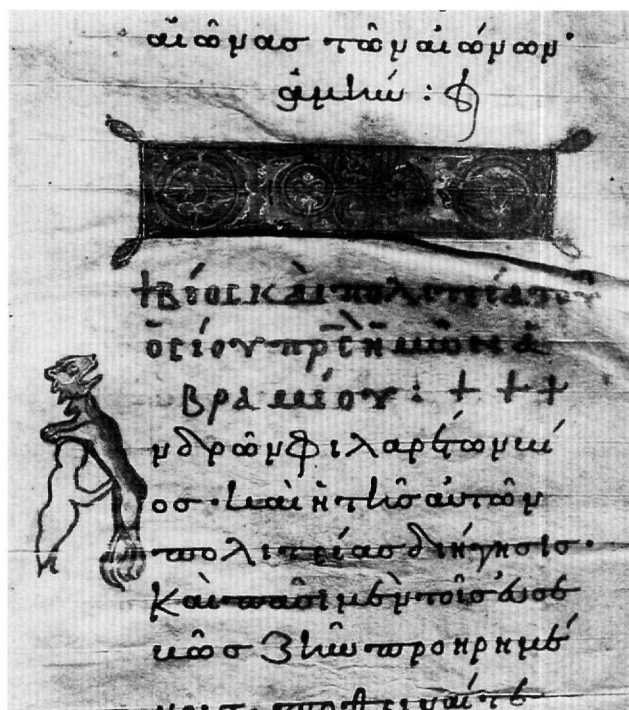 αἰῶνασ τῶν αἰώνων·
ἀμήν :
+ Βίος καὶ πολιτεία τοῦ
ὁσίου πρς ἡμῶν ἀ
βραμίου : + + +
Ἀνδρῶν φιλαρέτων βί
οσ· καὶ ἡ τῆσ αὐτῶν
πολιτείασ διήγησισ·
Καὶ πᾶσι μὲν τοῖσ εὐσε
βῶσ ζῆν προηρημέ